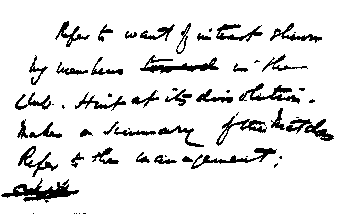 Refer to want of interest shown
by members toward in the
Club. Hint at its dissolution.
Makes a summary of the Matches
Refer to the management;